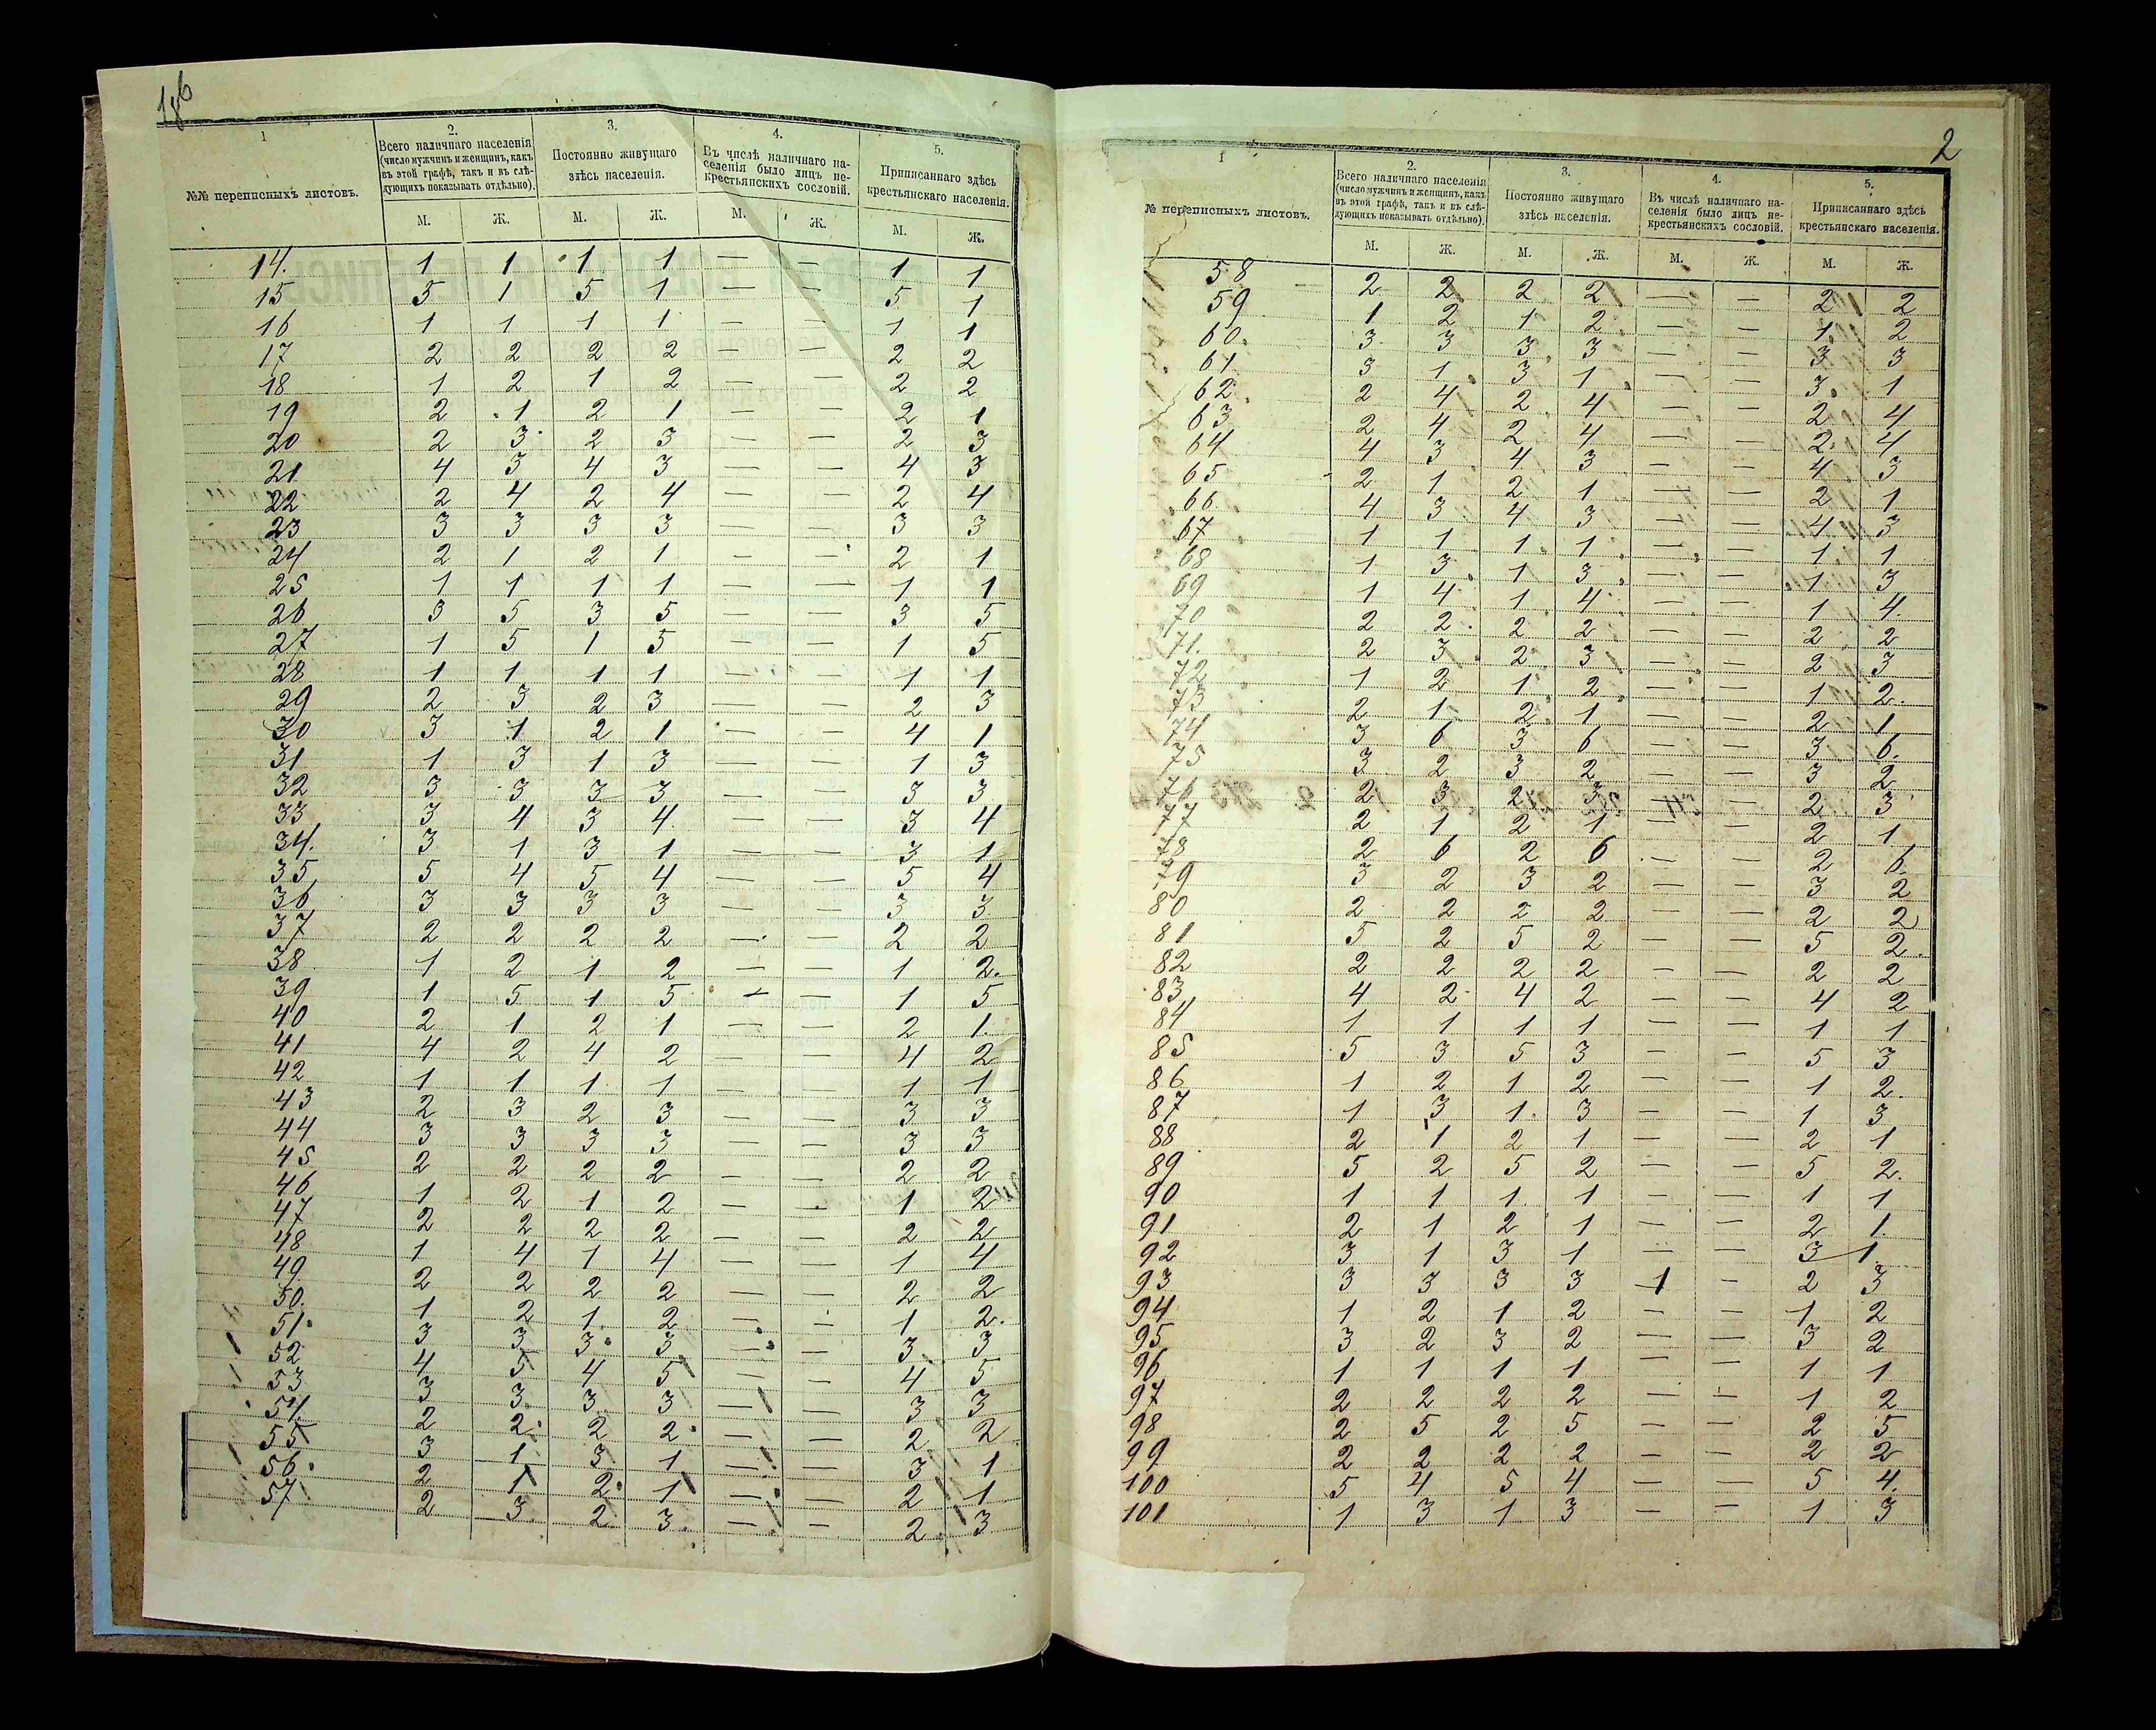 186
1
2.
3.
4.
5.
№№ переписныхъ листовъ.
Всего наличнаго населенія (число мужчинъ и женщинъ, какъ въ этой графѣ, такъ и въ слѣдующихъ показывать отдѣльно).
Постоянно живущаго здѣсь населенія.
Въ числѣ наличнаго населенія было лицъ некрестьянскихъ сословій.
Приписаннаго здѣсь крестьянскаго населенія.
М. Ж. М. Ж. М. Ж. М. Ж.
14. 1 1 1 1 — — 1 1
15 5 1 5 1 — — 5 1
16 1 1 1 1 — — 1 1
17 2 2 2 2 — — 2 2
18 1 2 1 2 — — 2 2
19 2 1 2 1 — — 2 1
20 2 3 2 3 — — 2 3
21 4 3 4 3 — — 4 3
22 2 4 2 4 — — 2 4
23 3 3 3 3 — — 3 3
24 2 1 2 1 — — 2 1
25 1 1 1 1 — — 1 1
26 3 5 3 5 — — 3 5
27 1 5 1 5 — — 1 5
28 1 1 1 1 — — 1 1
29 2 3 2 3 — — 2 3
30 3 1 2 1 — — 4 1
31 1 3 1 3 — — 1 3
32 3 3 3 3 — — 3 3
33 3 4 3 4 — — 3 4
34. 3 1 3 1 — — 3 1
35 5 4 5 4 — — 5 4
36 3 3 3 3 — — 3 3
37 2 2 2 2 — — 2 2
38 1 2 1 2 — — 1 2.
39 1 5 1 5 — — 1 5
40 2 1 2 1 — — 2 1.
41 4 2 4 2 — — 4 2
42 1 1 1 1 — — 1 1
43 2 3 2 3 — — 3 3
44 3 3 3 3 — — 3 3
45 2 2 2 2 — — 2 2
46 1 2 1 2 — — 1 2
47 2 2 2 2 — — 2 2
48 1 4 1 4 — — 1 4
49. 2 2 2 2 — — 2 2
50. 1 2 1. 2 — — 1 2.
51. 3 3 3 3 — — 3 3
52 4 5 4 5 — — 4 5
53 3 3 3 3 — — 3 3
54. 2 2 2 2 — — 2 2
55 3 1 3 1 — — 3 1
56. 2 1 2 1 — — 2 1
57 2 3 2 3 — — 2 3
2
1
2.
3.
4.
5.
№ переписныхъ листовъ.
Всего наличнаго населенія (число мужчинъ и женщинъ, какъ въ этой графѣ, такъ и въ слѣдующихъ показывать отдѣльно).
Постоянно живущаго здѣсь населенія.
Въ числѣ наличнаго населенія было лицъ некрестьянскихъ сословій.
Приписаннаго здѣсь крестьянскаго населенія.
М. Ж. М. Ж. М. Ж. М. Ж.
58 2 2 2 2 — — 2 2
59 1 2 1 2 — — 1 2
60. 3 3 3 3 — — 3 3
61. 3 1 3 1 — — 3 1
62. 2 4 2 4 — — 2 4
63 2 4 2 4 — — 2 4
64 4 3 4 3 — — 4 3
65 2 1 2 1 — — 2 1
66. 4 3 4 3 — — 4 3
67 1 1 1 1 — — 1 1
68 1 3 1 3 — — 1 3
69 1 4 1 4 — — 1 4
70 2 2 2 2 — — 2 2
71. 2 3 2 3 — — 2 3
72 1 2 1 2 — — 1 2.
73 2 1 2 1 — — 2 1
74 3 6 3 6 — — 3 6.
75 3 2 3 2 — — 3 2
76 2 3 2 3 — — 2 3
77 2 1 2 1 — — 2 1.
78 2 6 2 6 — — 2 6.
79 3 2 3 2 — — 3 2
80 2 2 2 2 — — 2 2
81 5 2 5 2 — — 5 2.
82 2 2 2 2 — — 2 2
83 4 2 4 2 — — 4 2
84 1 1 1 1 — — 1 1
85 5 3 5 3 — — 5 3
86 1 2 1 2 — — 1 2.
87 1 3 1. 3 — — 1 3
88 2 1 2 1 — — 2 1
89 5 2 5 2 — — 5 2.
90 1 1 1 1 — — 1 1
91 2 1 2 1 — — 2 1.
92 3 1 3 1 — — 3 1
93 3 3 3 3 1 — 2 3
94 1 2 1 2 — — 1 2
95 3 2 3 2 — — 3 2
96 1 1 1 1 — — 1 1
97 2 2 2 2 — — 1 2
98 2 5 2 5 — — 2 5
99 2 2 2 2 — — 2 2
100 5 4 5 4 — — 5 4.
101 1 3 1 3 — — 1 3